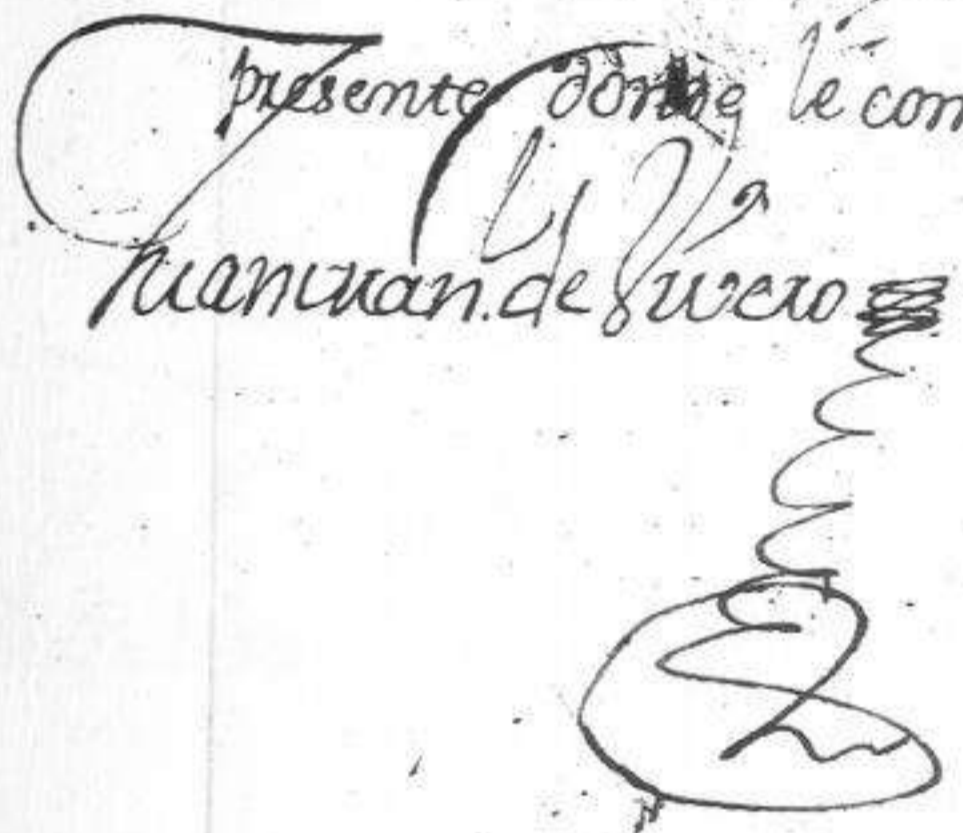 presente donde le com
Juan Juan de Rivero